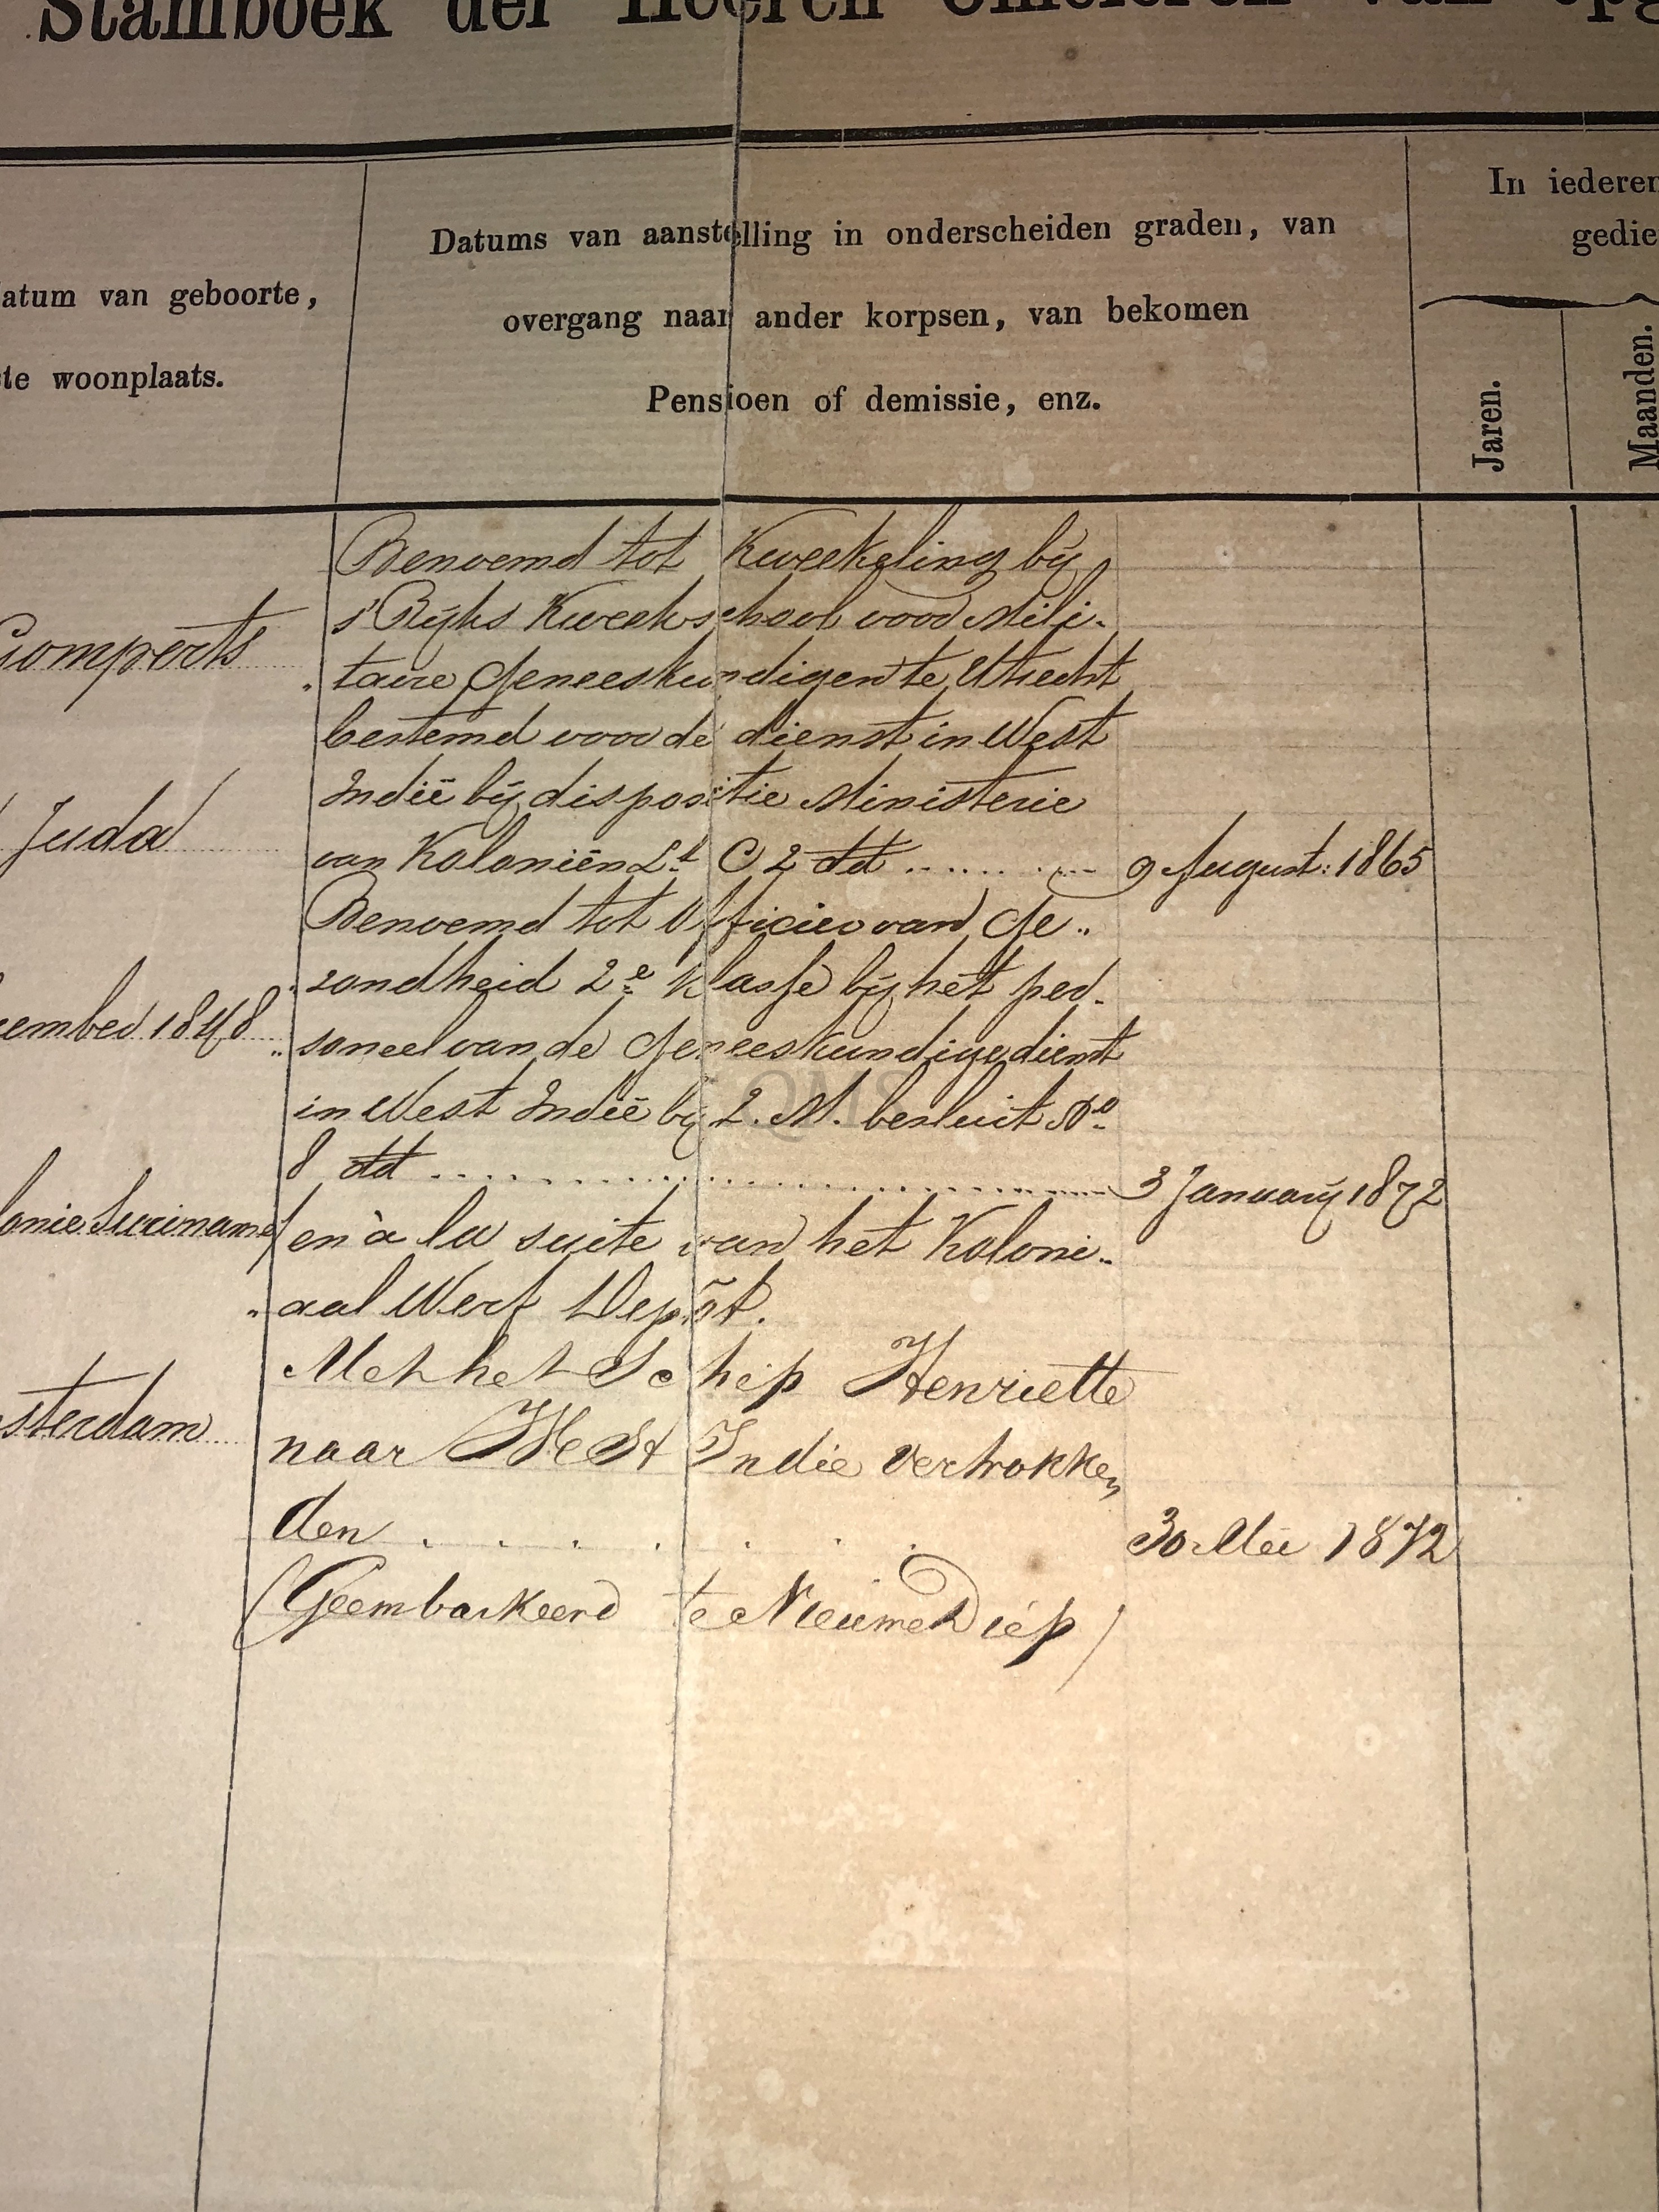 Stamboek der Heeren Officieren van opg
Datums van aanstelling in onderscheiden graden, van
overgang naar ander korpsen, van bekomen
Pensioen of demissie, enz.
atum van geboorte,
te woonplaats.
In iederen
gedie
Jaren.
Maanden.
Benoemd tot Kweekeling bij
s'Rijks Kweekschool voor Mili-
Gomperts
„ taire Geneeskundigen te Utrecht
bestemd voor de dienst in West
Indië bij dispositie Ministerie
Juda
van Koloniën Lt C 2 dd ......... 9 August: 1865
Benoemd tot Officier van Ge„
„ zondheid 2e Klasse bij het per-
ember 1848
„ soneel van de Geneeskundige dienst
in West Indië bij Z. M. besluit No
8 dd ......... 3 January 1872
onie Suriname/
en à la suite van het Koloni„
„ aal Werf Depôt.
Met het Schip Henriette
sterdam
naar West Indie vertrokken
den . . . . . . . 30 Mei 1872
(Geembarkeerd te Nieuwe Diep)
QMS